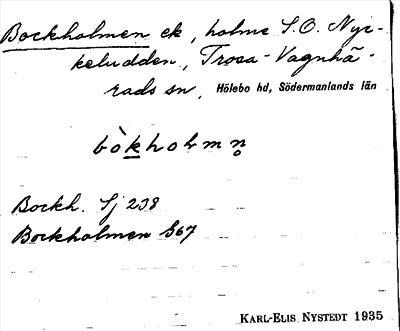 Bockholmen ek, holme S.O. Nyc-
keludden, Trosa-Vagnhä-
rads sn, Hölebo hd, Södermanlands län
bòkholmn
Bockh. Sj 238
Bockholmen G67
KARL-ELIS NYSTEDT 1935